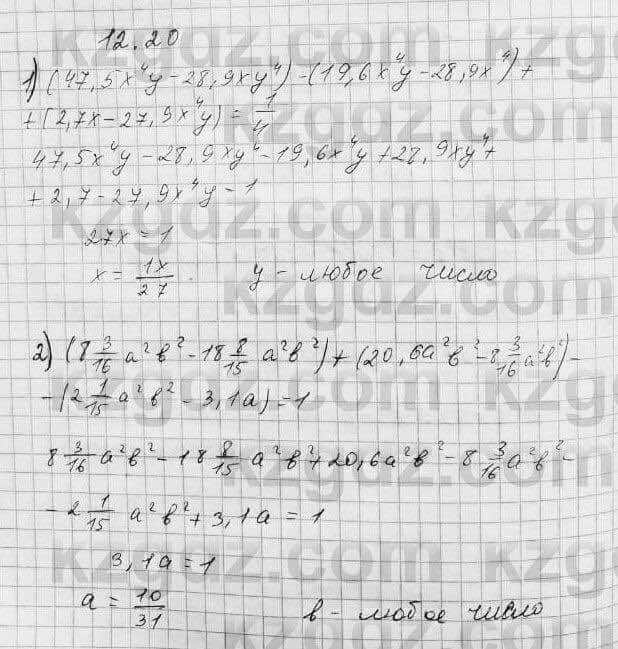 12.20
1) (47,5x⁴y - 28,9xy⁴) - (19,6x⁴y - 28,9x⁴) +
+ (2,7x - 27,9x⁴y) = 1
47,5x⁴y - 28,9xy⁴ - 19,6x⁴y + 28,9xy⁴ +
+ 2,7 - 27,9x⁴y - 1
27x = 1
x = 1x/27 y - любое число
2) (8 3/16 a²b² - 18 8/15 a²b²) + (20,6a²b² - 8 3/16 a²b²) -
- (2 1/15 a²b² - 3,1a) = 1
8 3/16 a²b² - 18 8/15 a²b² + 20,6a²b² - 8 3/16 a²b² -
- 2 1/15 a²b² + 3,1a = 1
3,1a = 1
a = 10/31 b - любое число
kzgdz.com